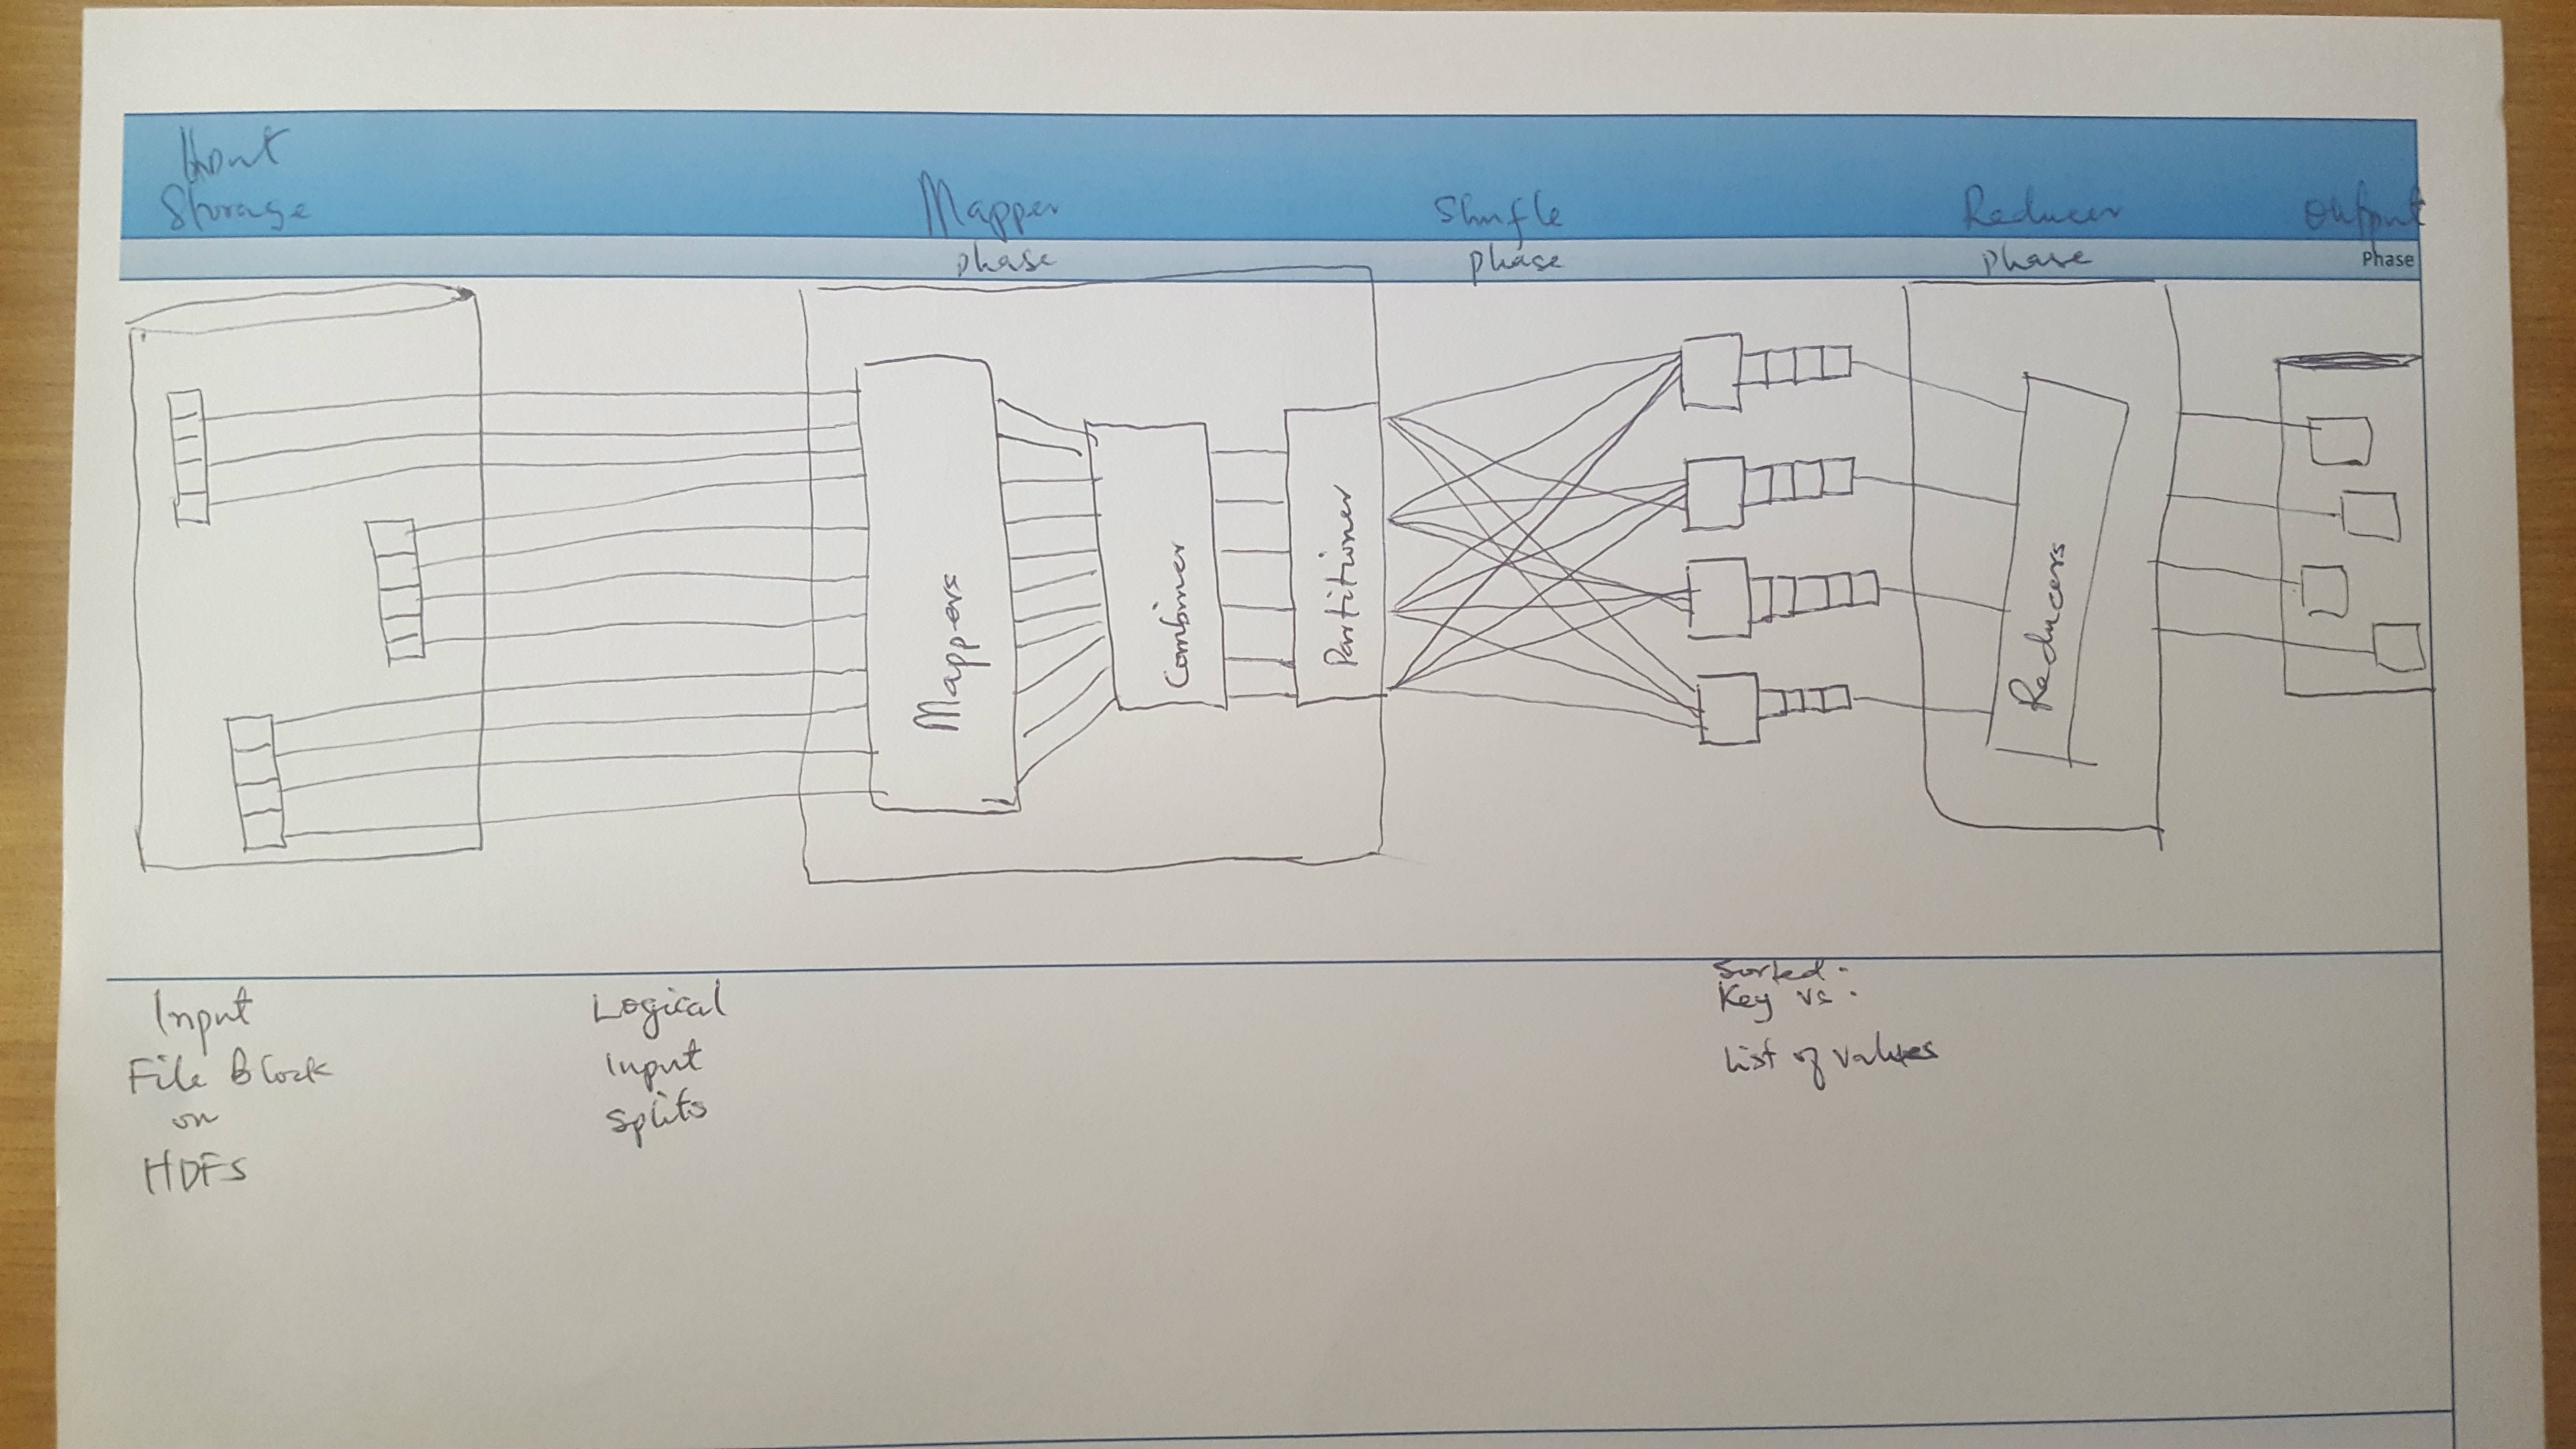 Input
Storage
Mapper
phase
Shufle
phase
Reducer
phase
Output
Phase
Mappers
Combiner
Partitioner
Reducers
Input
File Block
on
HDFS
Logical
Input
Splits
Sorted.
Key vs.
List of values